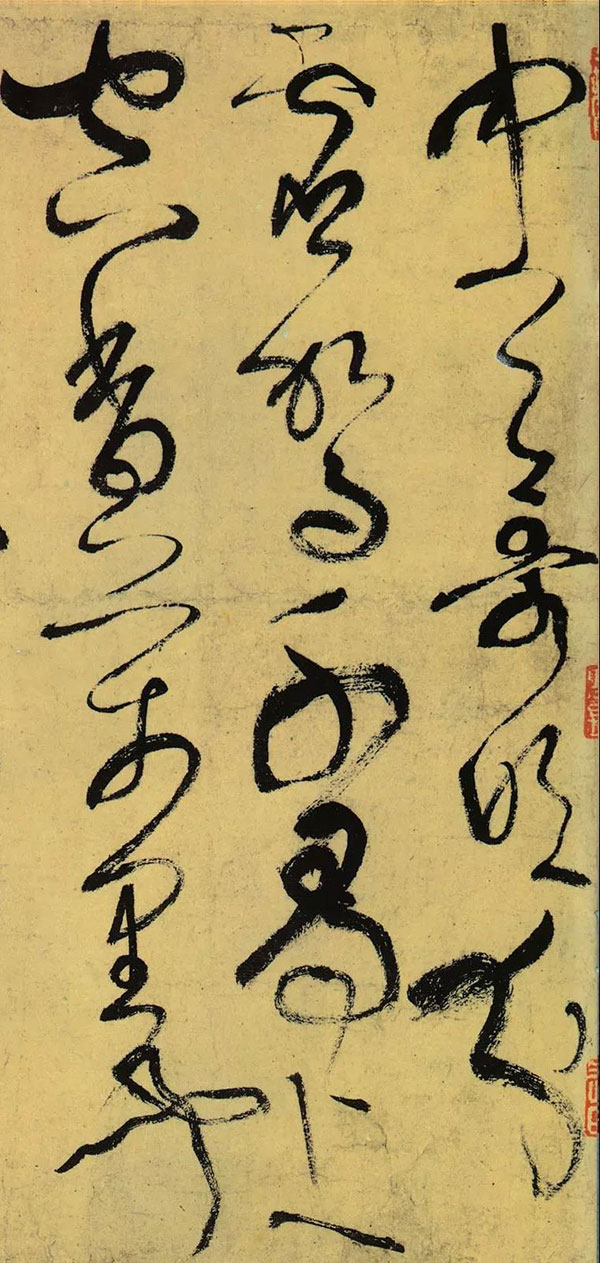 中天哥吹分
靈駕千尋上
空香萬里聞